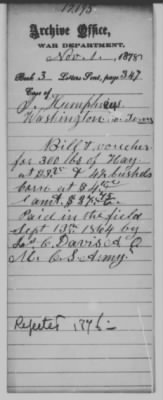 Archive Office,
WAR DEPARTMENT,
Nov. 1. 1878
Book 3 Letters Sent, page 347
Case of
J. Humphries
Washington Co. Texas
Bill & voucher
for 300 lbs of Hay
at & 42 bushels
corn at $4
Amt. $
Paid in the field
Sept 13th 1864 by
C Davis A Q
M. C. S. Army.
Rejected 1876